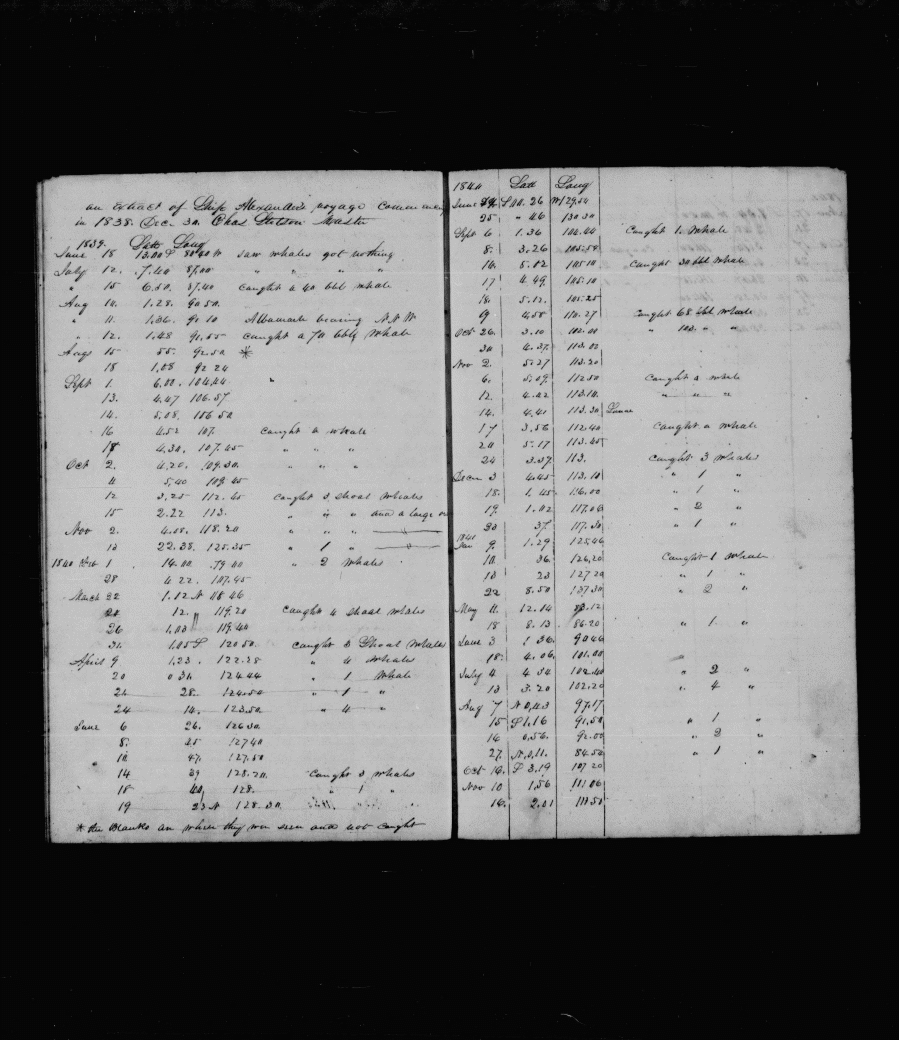 an Extract of Ship Alexander's voyage commencing
in 1838. Dec. 30. Chas Stetson Master
1839. Latt Long
June 18 13.00 S 80.40 W saw whales got nothing
July 12. 7.40 87.00 " " " "
" 15 6.50. 87.40 caught a 40 bbl whale
Aug 10. 1.28. 90.50.
" 11. 1.36. 91.10 Albemarle bearing N.N.W
" 12. 1.48 91.55 caught a 70 bbls Whale
Augs 15 55. 92.50 *
18 1.08 92.24
Sept 1. 6.00. 104.44 "
13. 4.47 106.57
14. 5.08. 106.50
16 4.52 107. caught a whale
18 4.30. 107.45 " " "
Oct 2. 4.20. 109.30. " " "
11 5.40 109.45
12 3.25 112.45 caught 3 Shoal Whales
15 2.22 113. " " " and a large
Nov 2. 4.08. 118.20 " " "
13 22.38. 125.35 " 1 "
1840 1 14.00 .79.00 " 2 Whales
28 4.22. 107.45
March 22 1.12 N 118.46
20 12. " 119.20 caught 4 shoal whales
26 1.03 119.40
31. 1.05 S 120.50. caught 3 Shoal Whales
April 9 1.23. 122.28 " 4 Whales
20 0.30. 124.44 " 1 Whale
21 28. 124.50 " 1 "
24 14. 123.50. " 4 "
June 6 26. 126.30.
8. 25 127.40
" 10 47. 127.50
14 39 128.20. Caught 3 whales
18 40 128. " 1 "
19 23 N 128.30.
* the Blanks are where they were seen and not caught
1840 Latt Long
June 24. S 00.26 W 129.54
25 " 46 130.30
Sept 6. 1.36 104.44 Caught 1. Whale
8. 3.26 105.58
14. 5.12 105.10 caught 30 bbl Whale
17 4.49. 105.10
18. 5.12. 105.25
19. 4.58 110.27 caught 68 bbl Whale
Oct 26. 3.10 102.00 " 103. " "
30 4.37. 113.02
Nov 2. 5.27 113.20
6. 5.09. 112.50 Caught a whale
12. 4.02 113.10. " " "
14. 4.41 113.30 Lunar
17 3.56 112.40 caught a whale
20 5.17 113.45
24 3.37 113. Caught 3 whales
Decem 3 4.45 113.10 " 1 "
18. 1.45 116.00 " 1 "
19. 1.02 117.06 " 2 "
20 37. 117.30 " 1 "
1841
Jan 9. 1.29 125.46
10. 36 126.20 Caught 1 Whale
13 23 127.20 " 1 "
22 8.50 137.30 " 2 "
May 11. 12.14 .12
18 8.13 86.20 " 1. "
June 3 1.36. 90.46
18. 4.06. 101.00
July 4 4.34 102.40 " 2 "
13 3.20 102.20 " 4 "
Aug 7 N 0.43 97.17
15 S 1.16 91.50 " 1 "
16 0.56. 92.00 " 2 "
27. N 0.11. 84.50 " 1 "
Oct 16. S 3.19 107.20
Nov 10 1.56 111.06
16. 2.01 113.50